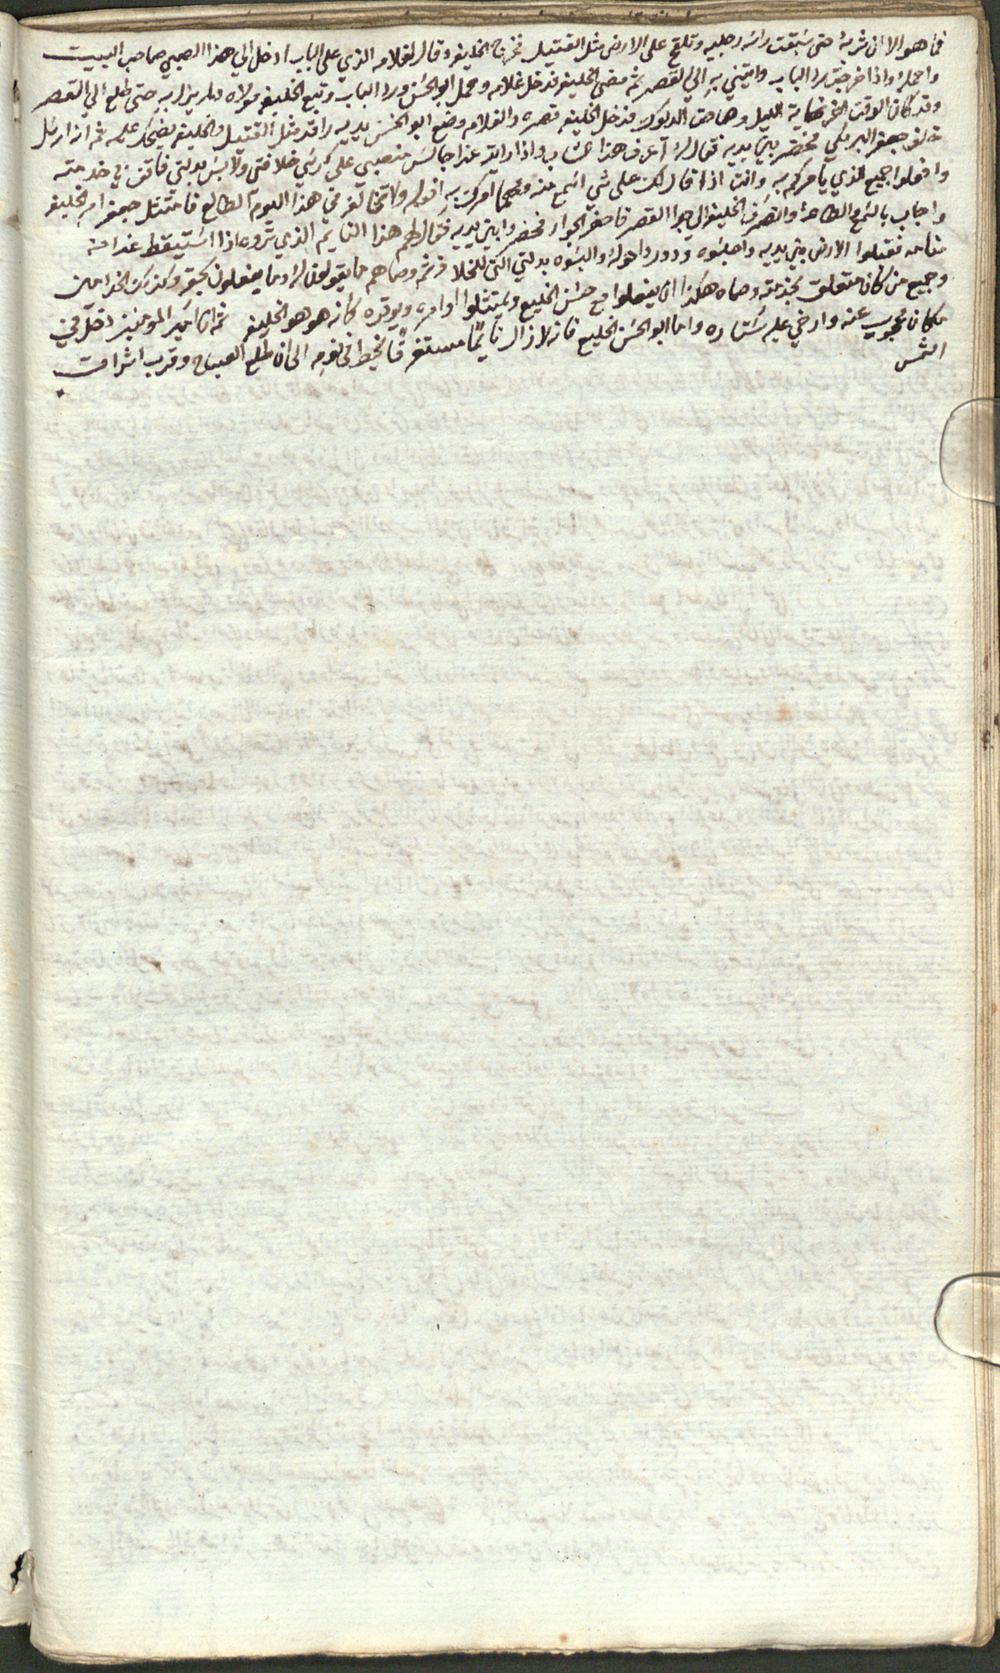 فما هو الا ان شربه حتى سبقت راسه رجليه وتلقح على الارض مثل القتيل فخرج الخليفه وقال لغلامه الذي على الباب ادخل الي هذا الصبي صاحب البيت
واحمله واذا خرجت رد الباب واتيني به الي القصر ثم مضى الخليفه فدخل غلامه وحمل ابو الحسن ورد الباب وتبع الخليفه مولاه ولم يزل به حتى طلع الي القصر
وقد كان الوقت اخر نهاية الليل وصاحت الديوك فدخل الخليفه قصره والغلامه وضع ابو الحسن بين يديه راقد مثل القتيل والخليفه يضحك عليه ثم انه ارسل
خلف جعفر البرمكي فحضر بين يديه فقال له اعرف هذا الشاب واذا رايته غدا جالس منصبي على كرسي خلافتي ولابس بدلتي فاقف في خدمته
وافعلوا جميع الذي يامركم به وانت اذا قال لك على شي اسمع منه ومهما امرك به افعله ولا تخالفه في هذا اليوم الطالع فامتثل جعفر امر الخليفه
واجاب بالسمع والطاعه وانصرف الخليفه الي جوا القصر فاحضر الجوار فحضروا بين يديه فقال لهم هذا النايم الذي تروه اذا استيقظ غدا من
منامه فقبلوا الارض بين يديه واجلسوه ودوروا حوله والبسوه بدلتي التي للخلافه ثم وصاهم ما يقولون له وما يفعلون بحقه وكذلك الخدامين
وجميع من كان متعلق بخدمته وصاه هكذا ان يفعلوا مع حسن الخليع ويمتثلوا اوامره ويوقره كانه هو هو الخليفه ثم ان امير المومنين دخل في
مكان محجوب عنه وارخي عليه ستاره واما ابو الحسن الخليع فانه لا زال نايما مستغرقا يخط في نومه الى ان طلع الصباح وقرب اشراقت
الشمس